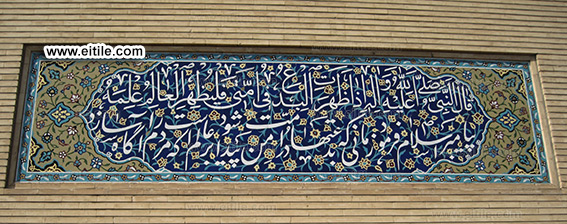 www.eitile.com
قال النبی صلی الله علیه و آله اذا ظهرت البدع فی امتی فلیظهر العالم علمه
پیامبر اسلام فرمود زمانی که بدعتها در امت من پدیدار شود بر عالم است که مردم را آگاه سازد